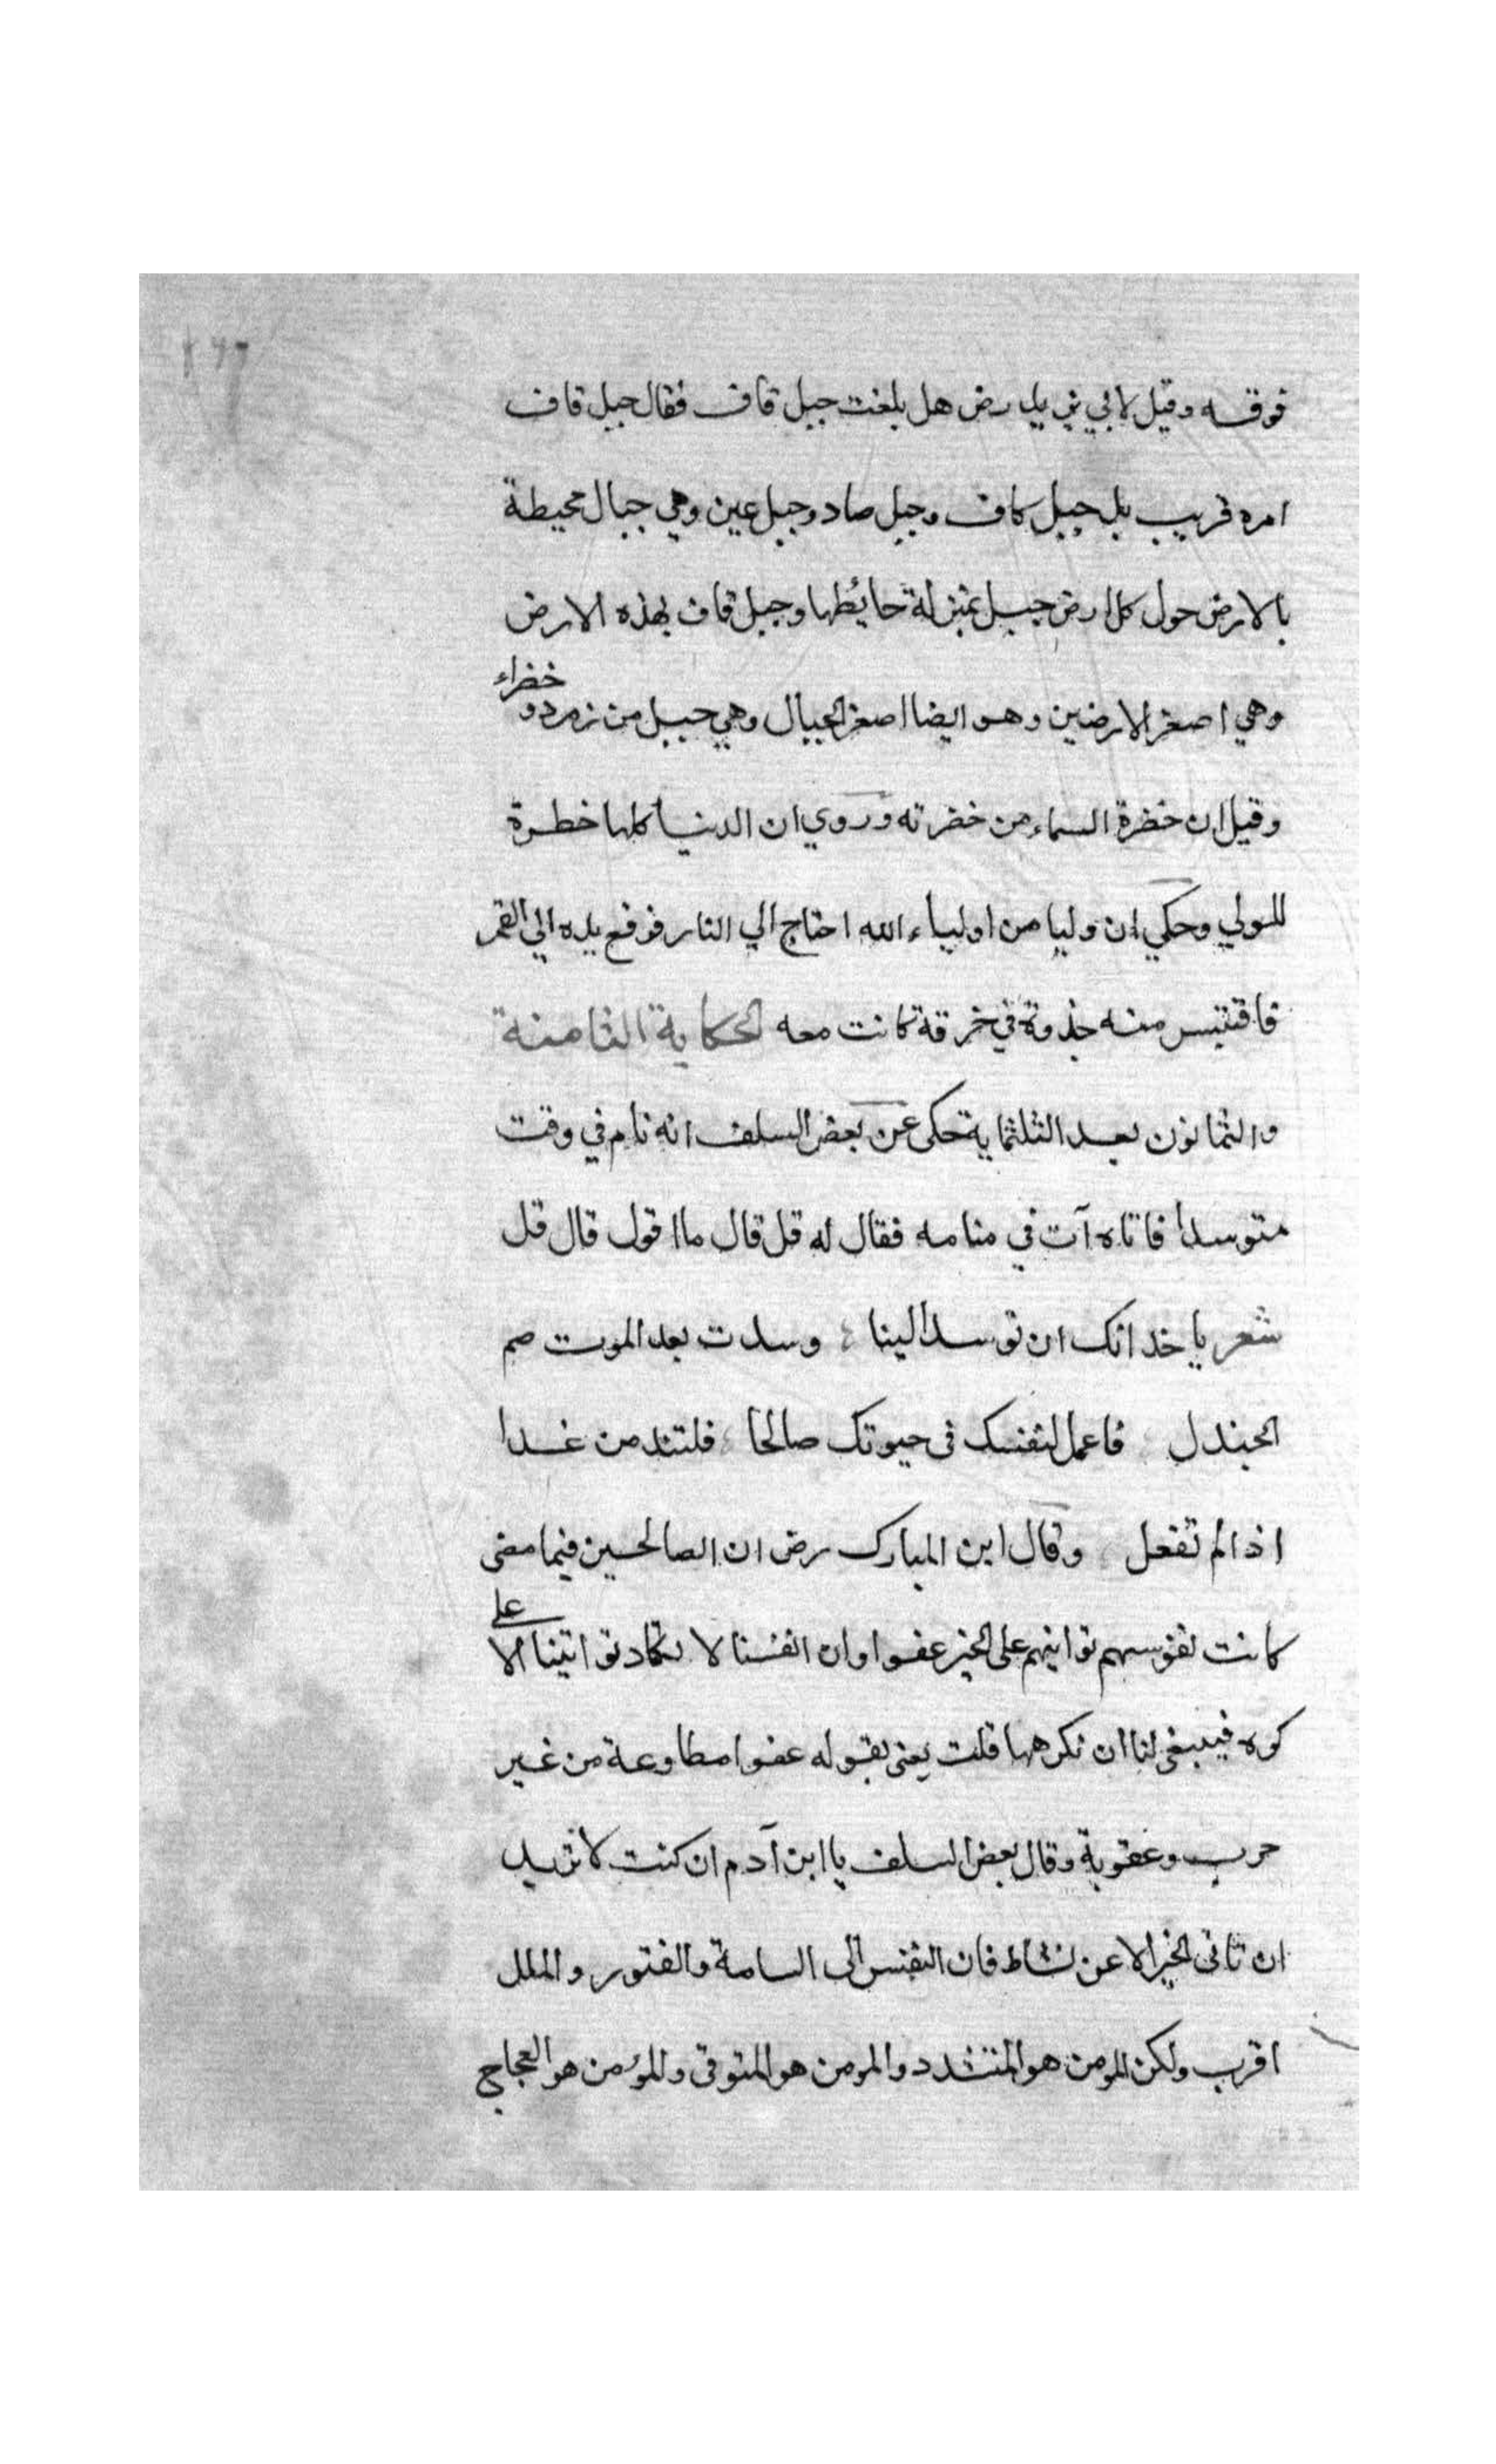 فوقه وقيل لابي يزيد رض هل بلغت جبل قاف فقال جبل قاف
امره قريب بل جبل كاف وجبل صاد وجبل عين وهي جبال محيطة
بالارض حول كل ارض جبل بمنزلة حائطها وجبل قاف بهذه الارض
وهي اصغر الارضين وهو ايضا اصغر الجبال وهي جبل من زمردو خضراء
وقيل ان خضرة السماء من خضرته وروي ان الدنيا كلها خطرة
للولي وحكي ان وليا من اولياء الله احتاج الي النار فرفع يده الي القمر
فاقتبس منه جذوة في خرقة كانت معه الحكاية الثامنة
والثمانون بعد الثلثماية حكى عن بعض السلف انه نام في وقت
متوسدا فاتاه آت في منامه فقال له قل قال ما اقول قال قل
شعر ياخد انك ان توسد الينا وسدت بعد الموت صم
الجندل فاعمل لنفسك في حيوتك صالحا فلتندمن غدا
اذا لم تفعل وقال ابن المبارك رض ان الصالحين فيما مضى
كانت نفوسهم تواتيهم على الخير عفوا وان انفسنا لا تكاد تواتينا الا على
كره فينبغي لنا ان نكرهها قلت يعني بقوله عفوا مطاوعة من غير
حرب وعقوبة وقال بعض السلف يا ابن آدم ان كنت لا تريد
ان تاتي الخير الا عن نشاط فان النفس الى السامة والفتور والملل
اقرب ولكن المومن هو المتشدد والمومن هو المتوقي والمؤمن هو العجاج